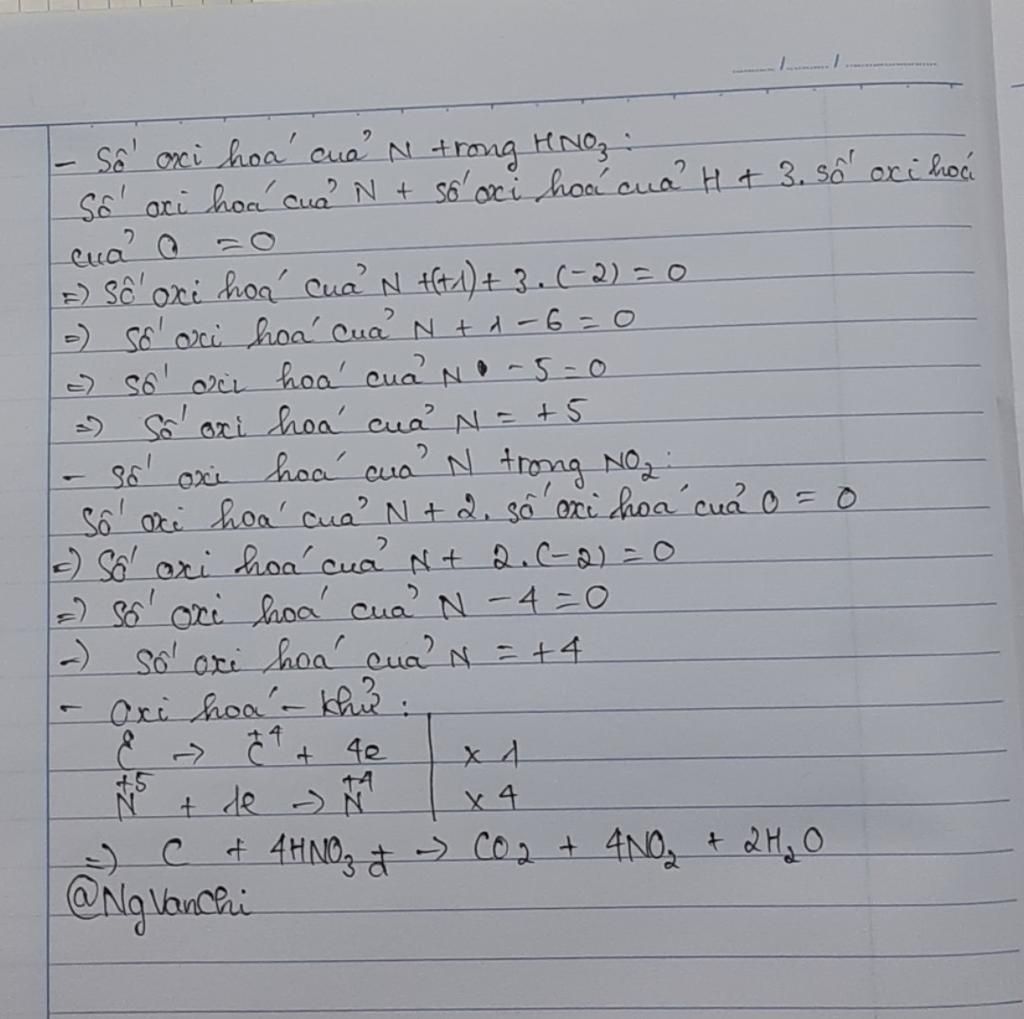 - Số oxi hoá của N trong HNO₃:
Số oxi hoá của N + số oxi hoá của H + 3. số oxi hoá
của O = 0
=> Số oxi hoá của N +(+1) + 3.(-2) = 0
=> Số oxi hoá của N + 1 - 6 = 0
=> số oxi hoá của N - 5 = 0
=> Số oxi hoá của N = +5
- Số oxi hoá của N trong NO₂:
Số oxi hoá của N + 2. số oxi hoá của O = 0
=> Số oxi hoá của N + 2.(-2) = 0
=> Số oxi hoá của N - 4 = 0
=> Số oxi hoá của N = +4
- Oxi hoá - khử:
C → C⁺⁴ + 4e | x 1
N⁺⁵ + 1e → N⁺⁴ | x 4
=> C + 4HNO₃ → CO₂ + 4NO₂ + 2H₂O
@NgVanChi